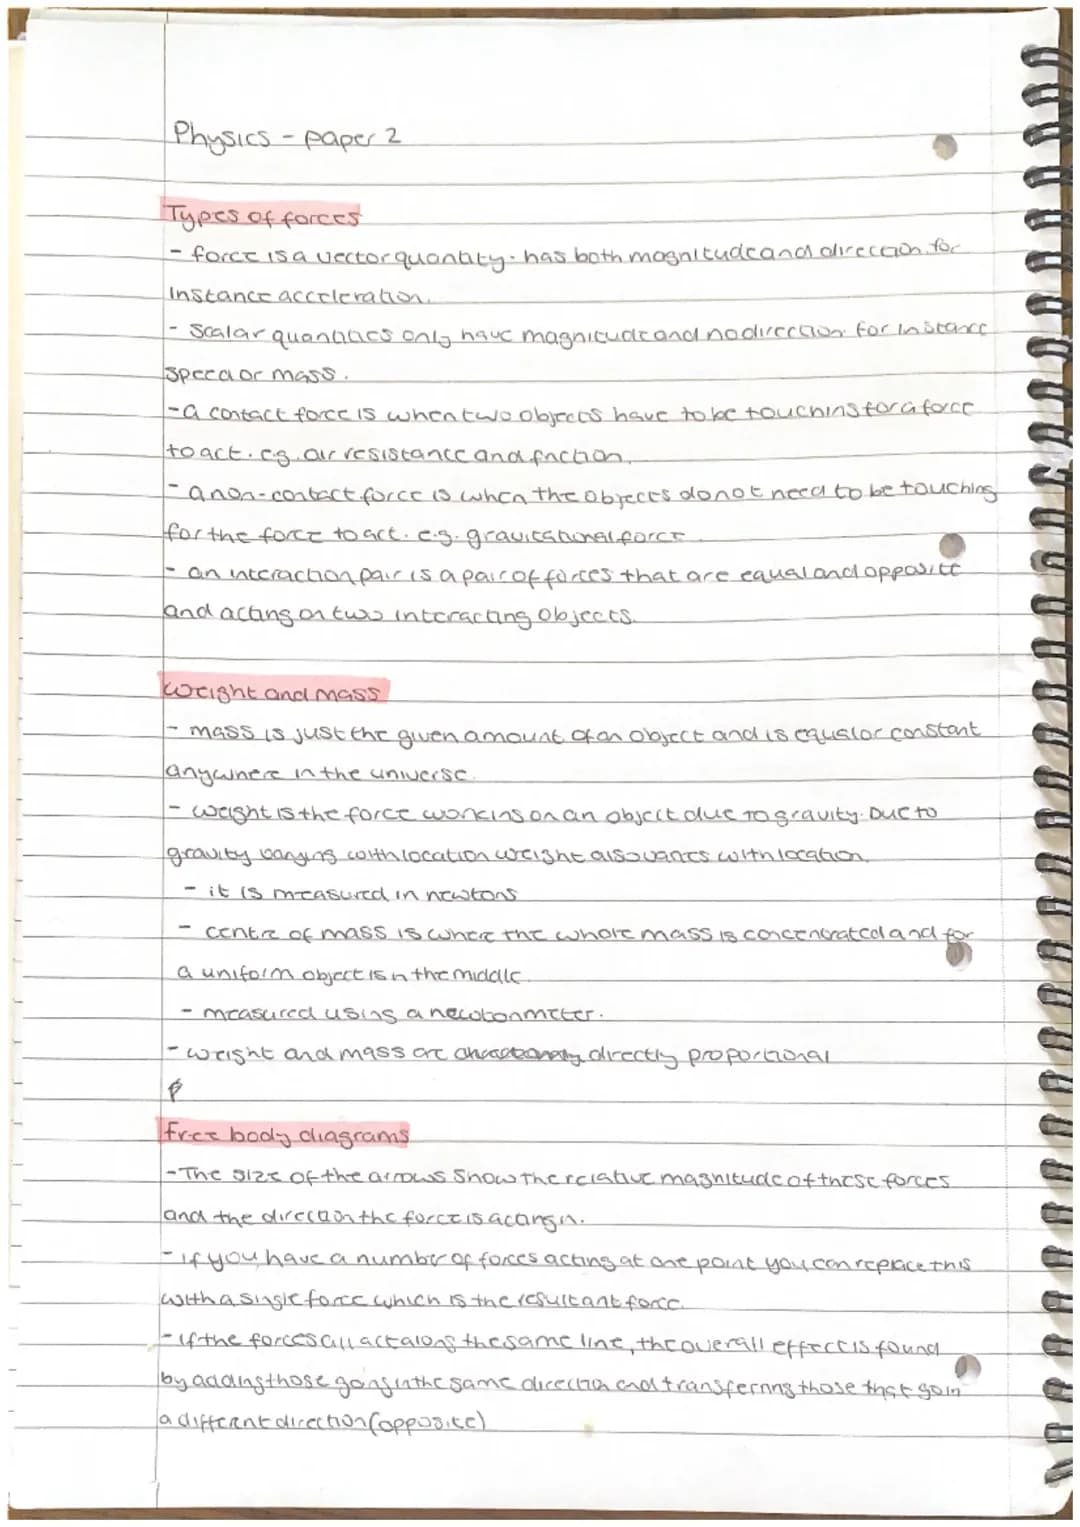 Physics - paper 2
Types of forces
- force is a vector quantity - has both magnitude and direction. for
instance acceleration.
- Scalar quantities only have magnitude and no direction for instance
speed or mass.
- a contact force is when two objects have to be touching for a force
to act. e.g. air resistance and friction.
- a non-contact force is when the objects do not need to be touching
for the force to act. e.g. gravitational force.
- an interaction pair is a pair of forces that are equal and opposite
and acting on two interacting objects.
weight and mass
- mass is just the given amount of an object and is equal or constant
anywhere in the universe.
- weight is the force working on an object due to gravity. Due to
gravity varying with location weight also varies with location.
- it is measured in newtons
- centre of mass is where the whole mass is concentrated and for
a uniform object is n the middle.
- measured using a newtonmeter.
- weight and mass are directly proportional
free body diagrams
- The size of the arrows show the relative magnitude of these forces
and the direction the force is acting in.
- if you have a number of forces acting at one point you can replace this
with a single force which is the resultant force.
- if the forces all act along the same line, the overall effect is found
by adding those going in the same direction and transferring those that go in
a different direction (opposite)